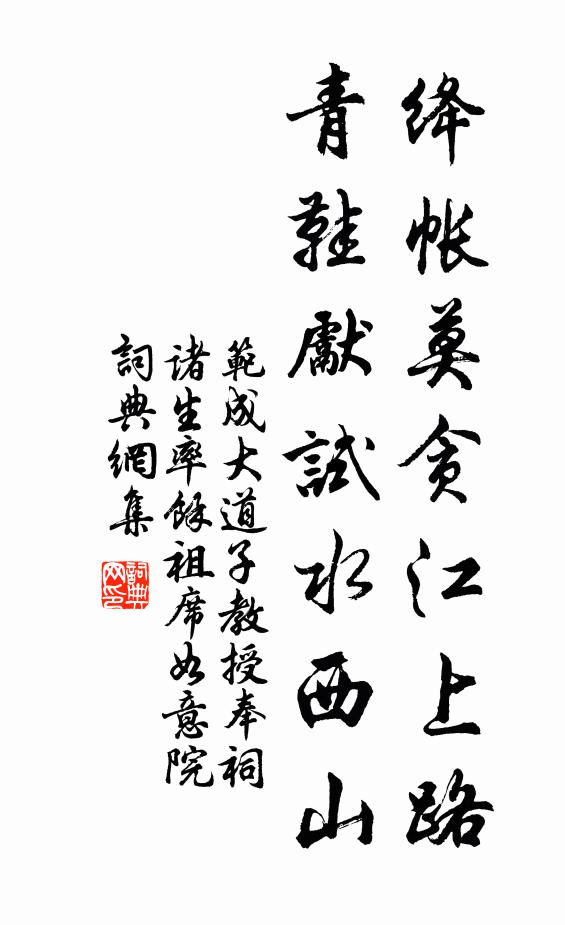 绛帐莫贪江上路
青鞋献試水西山
範成大道子教授奉祠
諸生率餘祖席如意院
詞典網集
詞典
网印